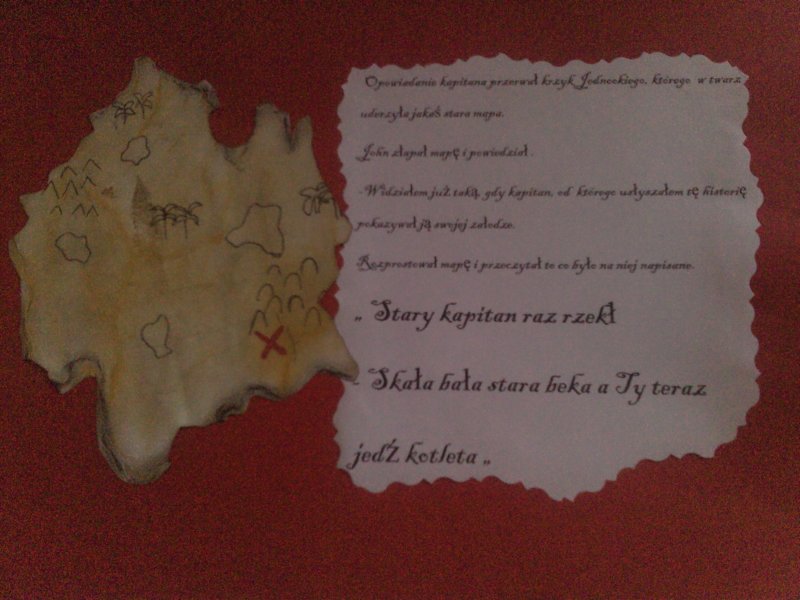 Opowiadanie kapitana przerwał krzyk Jednookiego, którego w twarz
uderzyła jakaś stara mapa.
John złapał mapę i powiedział .
-Widziałem już taką, gdy kapitan, od którego usłyszałem tę historię
pokazywał ją swojej załodze.
Rozprostował mapę i przeczytał to co było na niej napisane.
„ Stary kapitan raz rzekł
- Skała bała stara beka a Ty teraz
jedŹ kotleta „